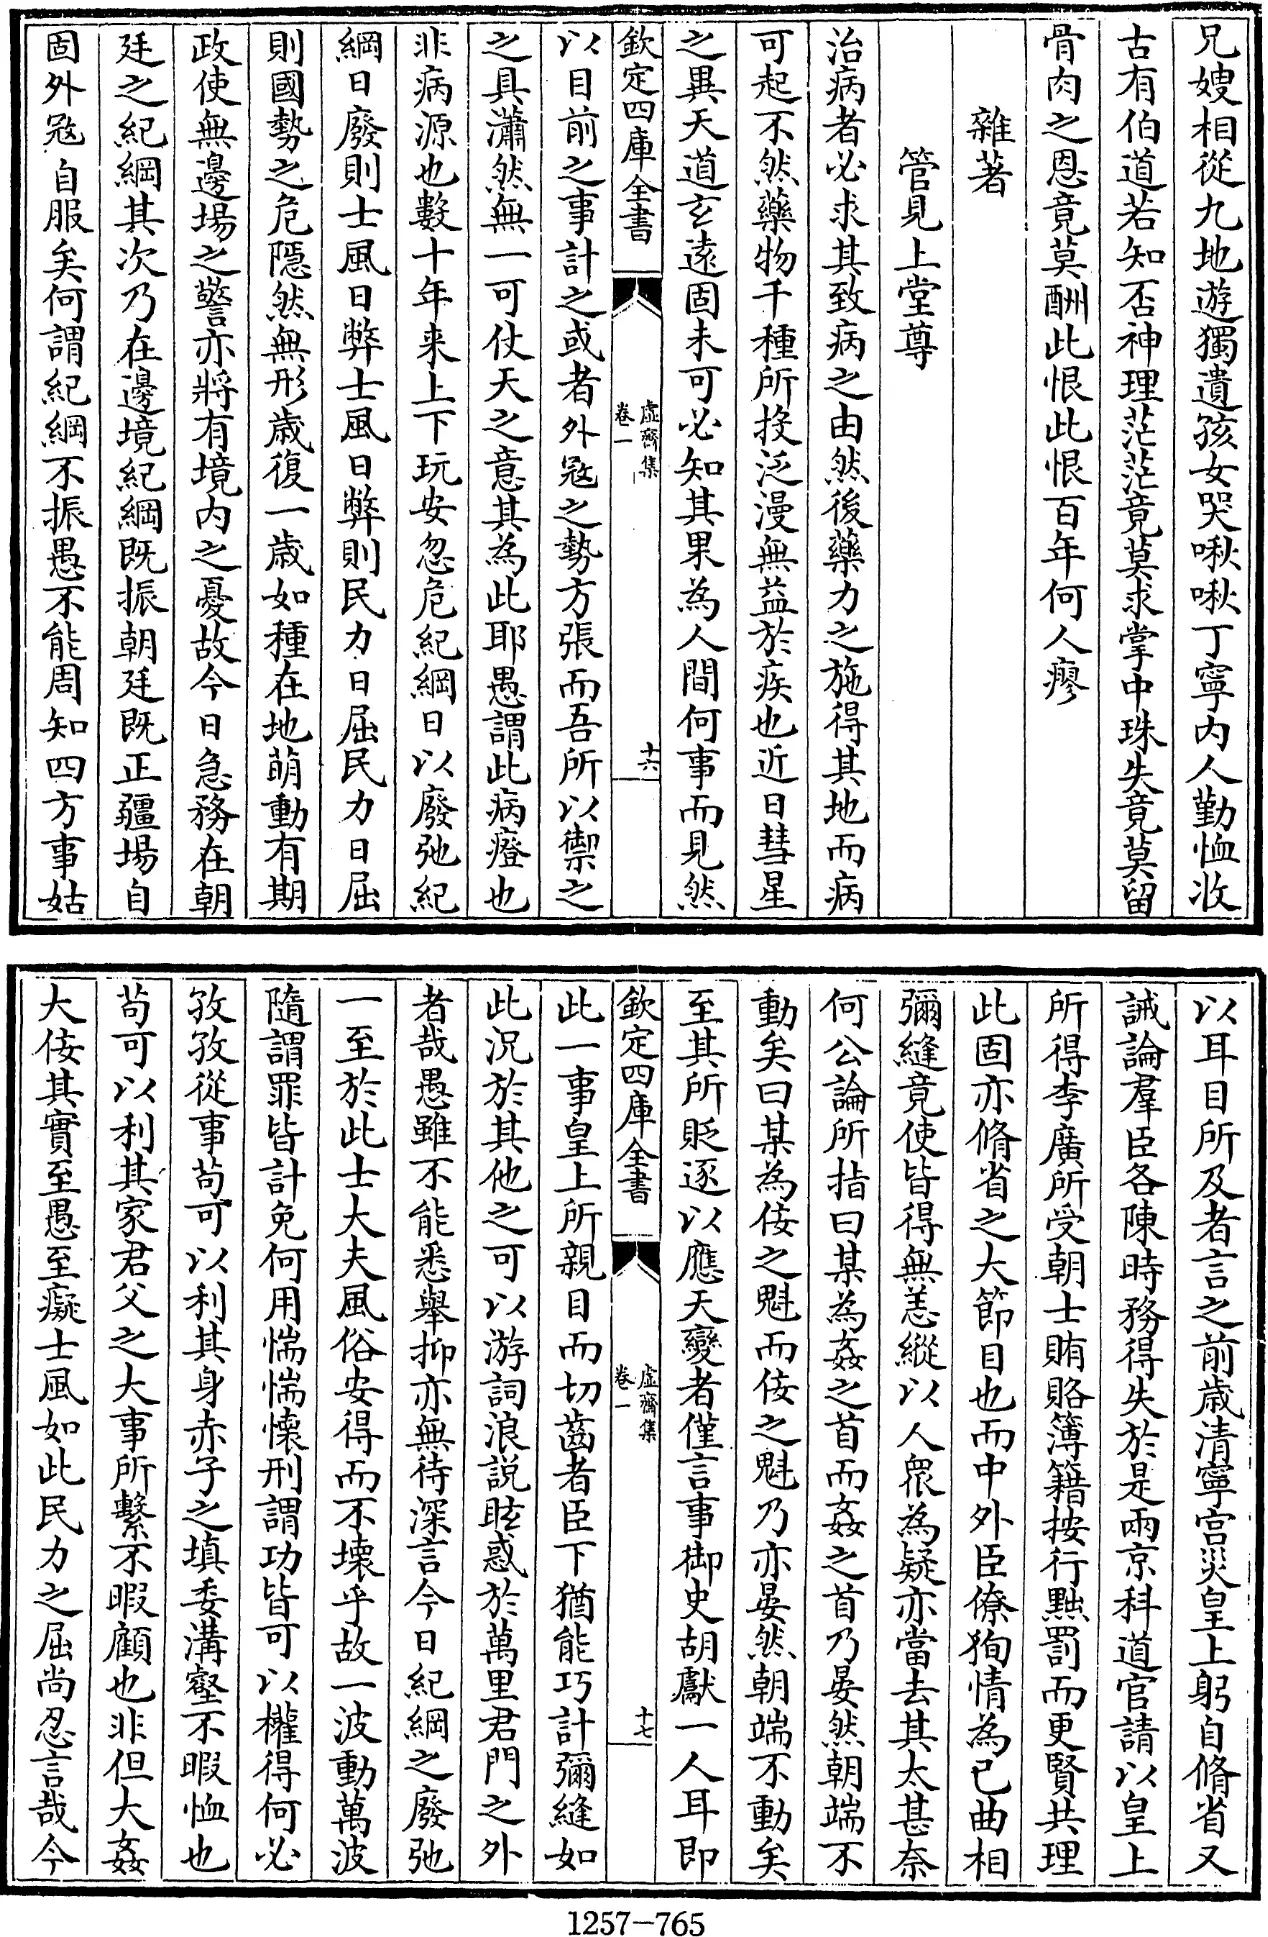 兄嫂相從九地遊獨遺孩女哭啾啾丁寧内人勤恤收
古有伯道若知否神理茫茫竟莫求掌中珠失竟莫留
骨肉之恩竟莫酬此恨此恨百年何人瘳
雜著
管見上堂尊
治病者必求其致病之由然後藥力之施得其地而病
可起不然藥物千種所投泛漫無益於疾也近日彗星
之異天道玄遠固未可必知其果為人間何事而見然
欽定四庫全書
虛齋集
卷一
十六
以目前之事計之或者外冦之勢方張而吾所以禦之
之具瀟然無一可仗天之意其為此耶愚謂此病癥也
非病源也數十年來上下玩安忽危紀綱日以廢弛紀
綱日廢則士風日弊士風日弊則民力日屈民力日屈
則國勢之危隠然無形歳復一歳如種在地萌動有期
政使無邊場之警亦將有境内之憂故今日急務在朝
廷之紀綱其次乃在邊境紀綱既振朝廷既正疆場自
固外冦自服矣何謂紀綱不振愚不能周知四方事姑
以耳目所及者言之前歳清寧宫災皇上躬自脩省又
誡論羣臣各陳時務得失於是兩京科道官請以皇上
所得李廣所受朝士賄賂簿籍按行黜罰而更賢共理
此固亦脩省之大節目也而中外臣僚狥情為已曲相
彌縫竟使皆得無恙縱以人衆為疑亦當去其太甚奈
何公論所指曰某為姦之首而姦之首乃晏然朝端不
動矣曰某為佞之魁而佞之魁乃亦晏然朝端不動矣
至其所貶逐以應天變者僅言事御史胡獻一人耳即
欽定四庫全書
虛齋集
卷一
十七
此一事皇上所親目而切齒者臣下猶能巧計彌縫如
此况於其他之可以游詞浪説眩惑於萬里君門之外
者哉愚雖不能悉舉抑亦無待深言今日紀綱之廢弛
一至於此士大夫風俗安得而不壊乎故一波動萬波
隨謂罪皆計免何用惴惴懐刑謂功皆可以權得何必
孜孜從事苟可以利其身赤子之填委溝壑不暇恤也
苟可以利其家君父之大事所繫不暇顧也非但大姦
大佞其實至愚至癡士風如此民力之屈尚忍言哉今
1257—765